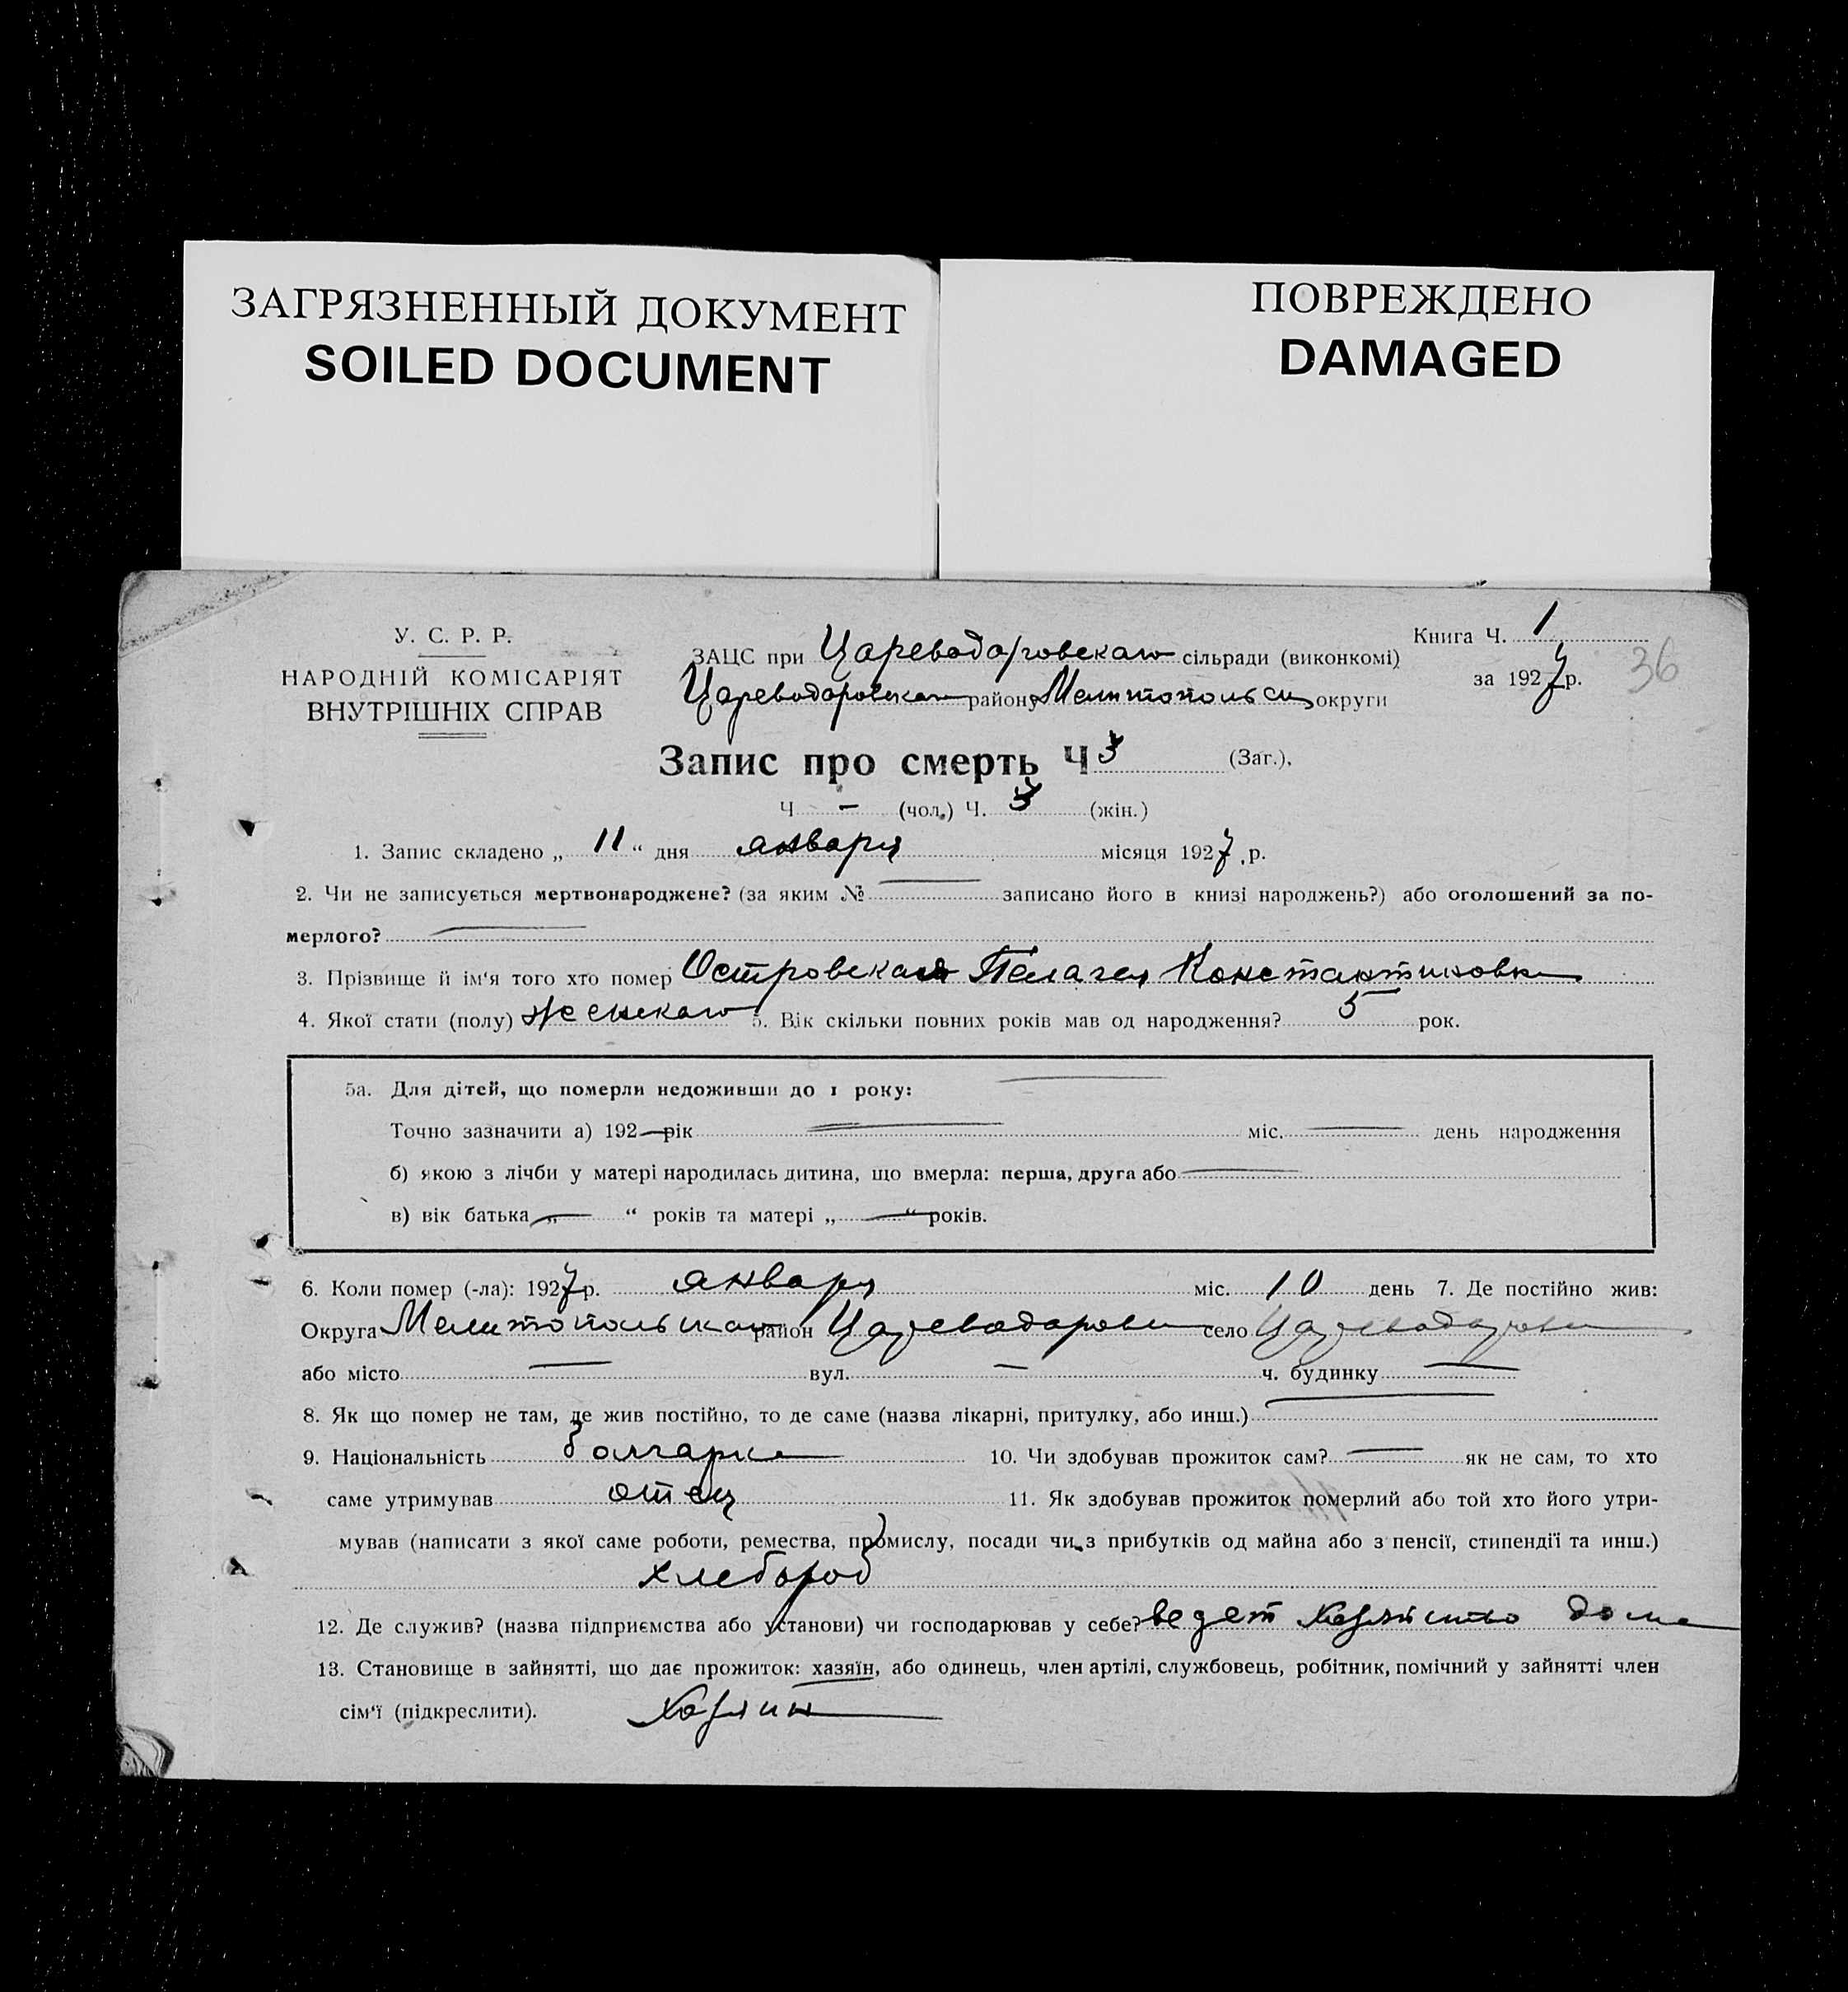 ЗАГРЯЗНЕННЫЙ ДОКУМЕНТ
SOILED DOCUMENT
ПОВРЕЖДЕНО
DAMAGED
У. С. Р. Р.
НАРОДНІЙ КОМІСАРІЯТ
ВНУТРІШНІХ СПРАВ
ЗАЦС при Цареводаровскаго сільради (виконкомі)
района Мелитопольск округи
Книга Ч. 1
за 1927 р.
36
Запис про смерть Ч 3 (Заг.),
Ч - (чол.) Ч. 3 (жін.)
1. Запис складено „ 11 “ дня января місяця 1927 р.
2. Чи не записується мертвонароджене? (за яким № — записано його в книзі народжень?) або оголошений за по-
мерлого? —
3. Прізвище й ім‘я того хто помер Островская Пелагея Константиновна
4. Якої стати (полу) женскаго 5. Вік скільки повних років мав од народження? 5 рок.
5а. Для дітей, що померли недоживши до 1 року: —
Точно зазначити а) 192 — рік — міс. — день народження
б) якою з лічби у матері народилась дитина, що вмерла: перша, друга або —
в) вік батька „ — “ років та матері „ — “ років.
6. Коли помер (-ла): 1927 р. января міс. 10 день 7. Де постійно жив:
Округа Мелитопольская район Цареводаровк село Цареводаровк
або місто — вул. — ч. будинку —
8. Як що помер не там, де жив постійно, то де саме (назва лікарні, притулку, або инш.) —
9. Національність болгарка 10. Чи здобував прожиток сам? — як не сам, то хто
саме утримував отец 11. Як здобував прожиток померлий або той хто його утри-
мував (написати з якої саме роботи, ремества, промислу, посади чи з прибутків од майна або з пенсії, стипендії та инш.)
хлебороб
12. Де служив? (назва підприємства або установи) чи господарював у себе? ведет хозяйство дома
13. Становище в зайнятті, що дає прожиток: хазяїн, або одинець, член артілі, службовець, робітник, помічний у зайнятті член
сім‘ї (підкреслити). Хазяин